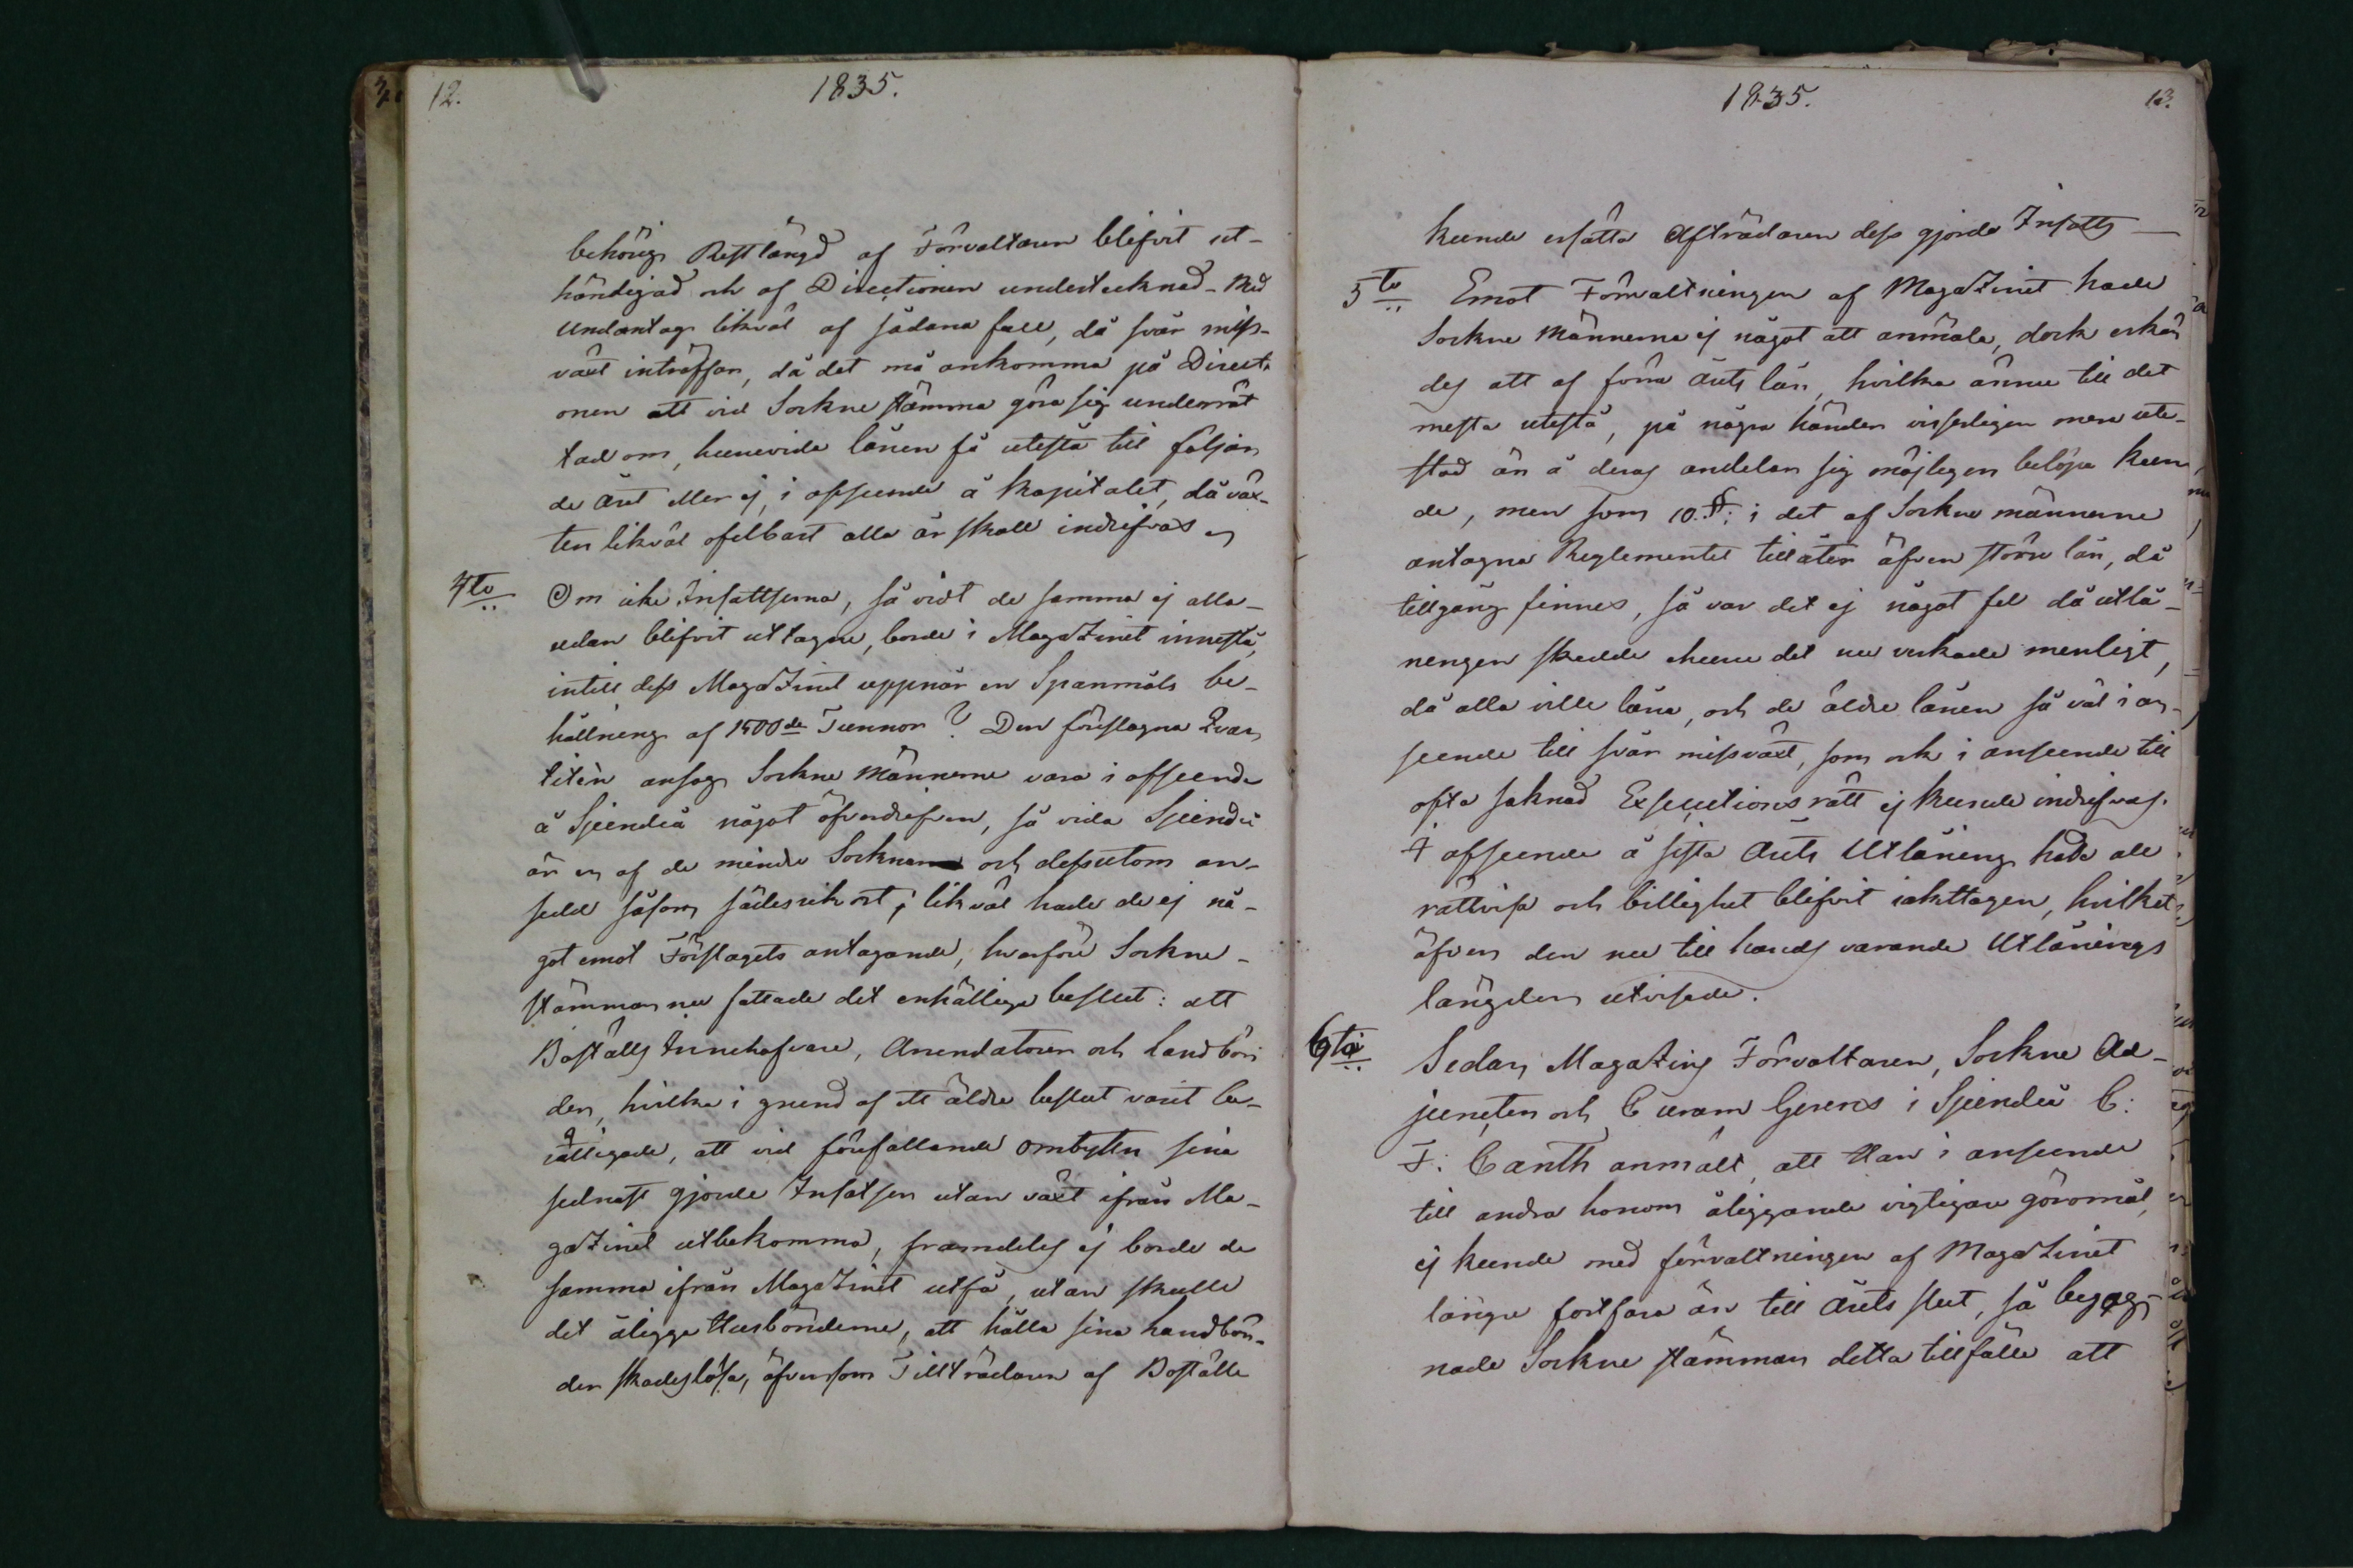 12.
1835.
behörig Restlängd af Förvaltaren blifvit ut-
händigad och af Directionen undertecknad. Med
undantag likväl af sådana fall, då svår miss-
växt inträffar, då det må ankomma på Direct-
onen att vid Sockne stämma göra sig underrät
tad om, huruvida lånen få utestå till följan
de året eller ej, i afseende å Kapitalet, då väx-
ten likväl ofelbart alla år skall indrifvas
4to Om icke Insattserna, så vidt de samma ej alla-
redan blifvit uttagne, borde i Magazinet innestå,
intill dess Magazinet uppnår en Spanmåls be-
hållning af 1500de Tunnor? Den föreslagna Qvan
titén ansågo Sockne Männerne vara i afseende
å Sjundeå något öfverdrifven, så vida Sjundeå
är en af de mindre Socknar och dessutom an-
sedd såsom sädesrik ort; likväl hade de ej nå-
got emot Förslagets antagande, hvarföre Sockne-
stämman nu fattade det enhälliga beslut: att
Boställs Innehafvare, Arendatorer och Landbön
der, hvilka i grund af ett äldre beslut varit be-
rättigade, att vid förefallande ombyten sina
sednast gjorde Insatser utan växt ifrån Ma-
gazinet utbekomma, framdeles ej borde de
samma ifrån Magazinet utfå, utan skulle
det åligga Husbönderne, att hålla sina Landbön-
der skadeslösa, äfvensom Tillträdaren af Boställe
1835.
13.
kunde ersätta Afträdaren dess gjorda Insatts
5to Emot Förvaltningen af Magazinet hade
Sockne Männerne ej något att anmäla, dock erkän
des att af förra årets lån, hvilka ännu till det
mesta utestå, på några händer visserligen mera ute-
stod än å deras andelar sig möjligen belöpa kun
de, men som 10. §: i det af Sockne männerne
antagna Reglementet tillåter äfven större lån, då
tillgång finnes, så var det ej något fel då utlå-
ningen skedde ehuru det nu verkade menligt,
då alla ville låna, och de äldre lånen så väl i an-
seende till svår missväxt, som ock i anseende till
ofta saknad Executions rätt ej kunde indrifvas.
I afseende å sista årets Utlåning hade all
rättvisa och billighet blifvit iakttagen, hvilket
äfven den nu till hands varande Utlånings
längden utvisade.
6to Sedan Magazins Förvaltaren, Sockne Ad-
juncten och Curam Gerens i Sjundeå C:
F: Canth anmält, att Han i anseende
till andra honom åliggande vigtigare göromål,
ej kunde med förvaltningen af Magazinet
längre fortfara än till årets slut, så begag-
nade Sockne stämman detta tillfälle att